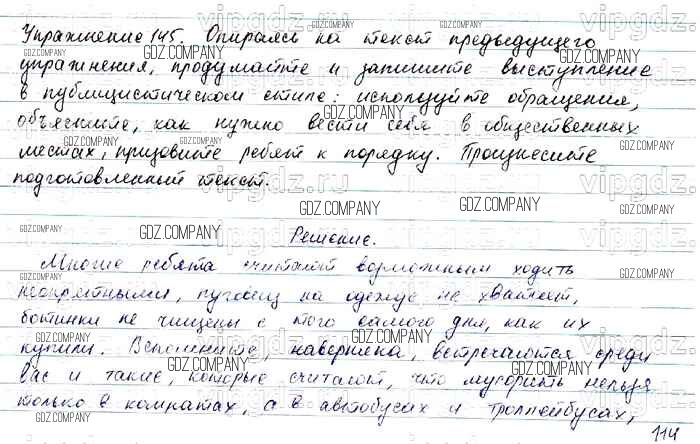 Упражнение 145. Опираясь на текст предыдущего
упражнения, продумайте и запишите выступление
в публицистическом стиле: используйте обращения,
объясните, как нужно вести себя в общественных
местах, призовите ребят к порядку. Произнесите
подготовленный текст.
Решение.
Многие ребята считают возможным ходить
неопрятными, пуговиц на одежде не хватает,
ботинки не чищены с того самого дня, как их
купили. Вспомните, наверняка, встречаются среди
вас и такие, которые считают, что мусорить нельзя
только в комнатах, а в автобусах и троллейбусах,
114
GDZ.COMPANY
vipgdz.ru